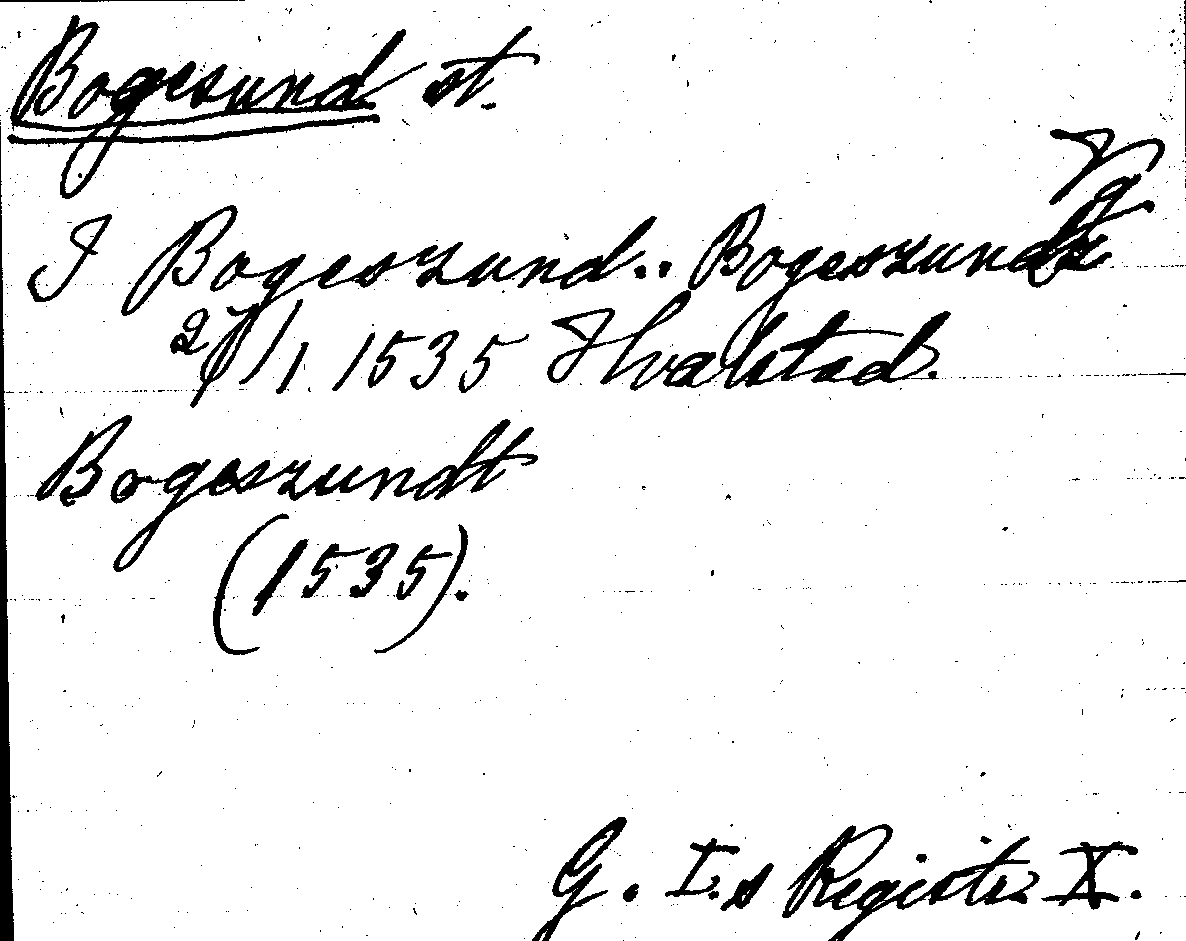 Bogesund st.
Vg
I Bogeszund.. Bogeszundz
27/1 1535 Hvalstad.
Bogeszundt
(1535).
G. I:s Registr. X.